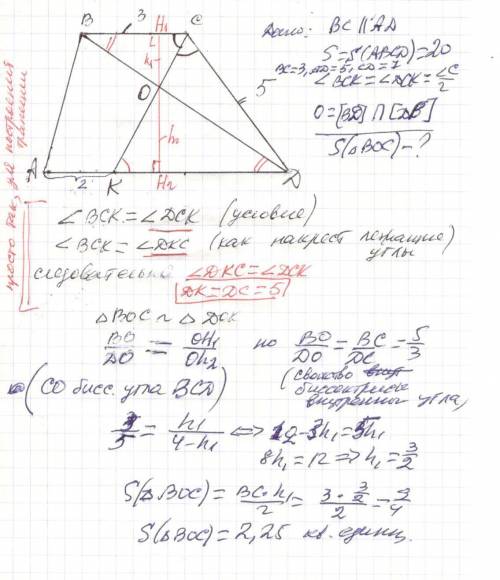 B 3 H₁ C
Дано: BC ∥ AD
S=S(ABCD)=20
BC=3, AD=5, CD=7
∠BCK=∠DCK=∠C/2
O=[BD]∩[DB]
S(△BOC)-?
h₁
O
5
h₂
A 2 K H₂ D
просто так, для построения трапеции
∠BCK=∠DCK (условие)
∠BCK=∠DKC (как накрест лежащие углы)
следовательно ∠DKC=∠DCK
DK=DC=5
△BOC ~ △DOK
BO/DO = OH₁/OH₂ но BO/DO = BC/DC = 5/3
(свойство биссектрисы внутреннего угла,
CO бисс. угла BCD)
3/5 = h₁/4-h₁ ⟺ 12-3h₁=5h₁
8h₁=12 ⇒ h₁=3/2
S(△BOC) = BC·h₁/2 = 3·3/2/2 = 9/4
S(△BOC)=2,25 кв. единиц.